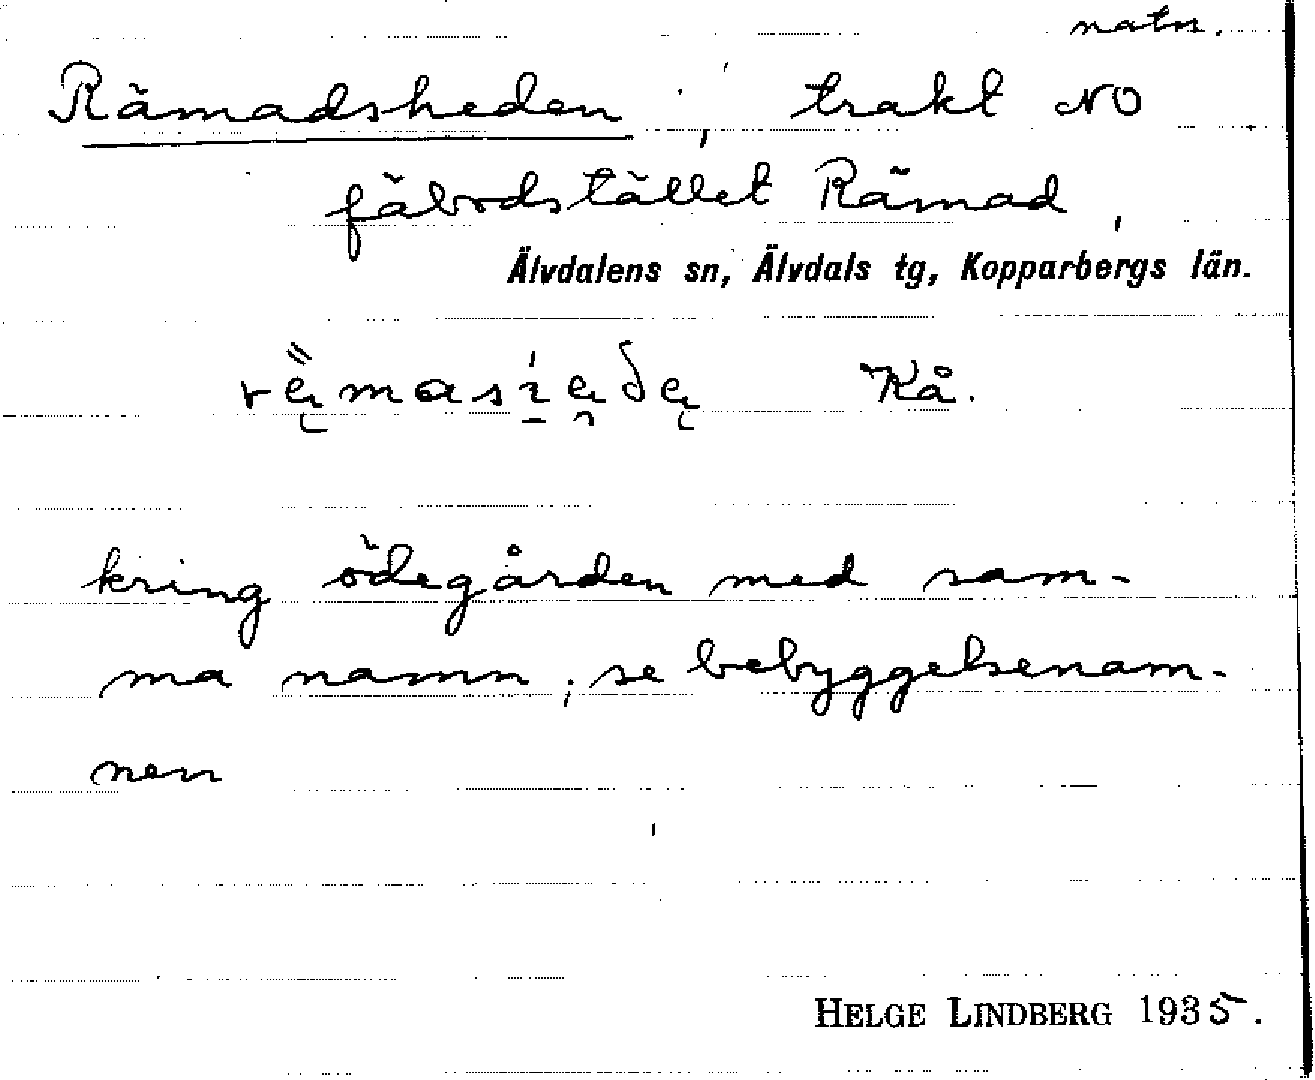 natn.
Rämadsheden, trakt NO
fäbodstället Rämad,
Älvdalens sn, Älvdals tg, Kopparbergs län.
Kå.
kring ödegården med sam-
ma namn, se bebyggelsenam-
nen
HELGE LINDBERG 1935.